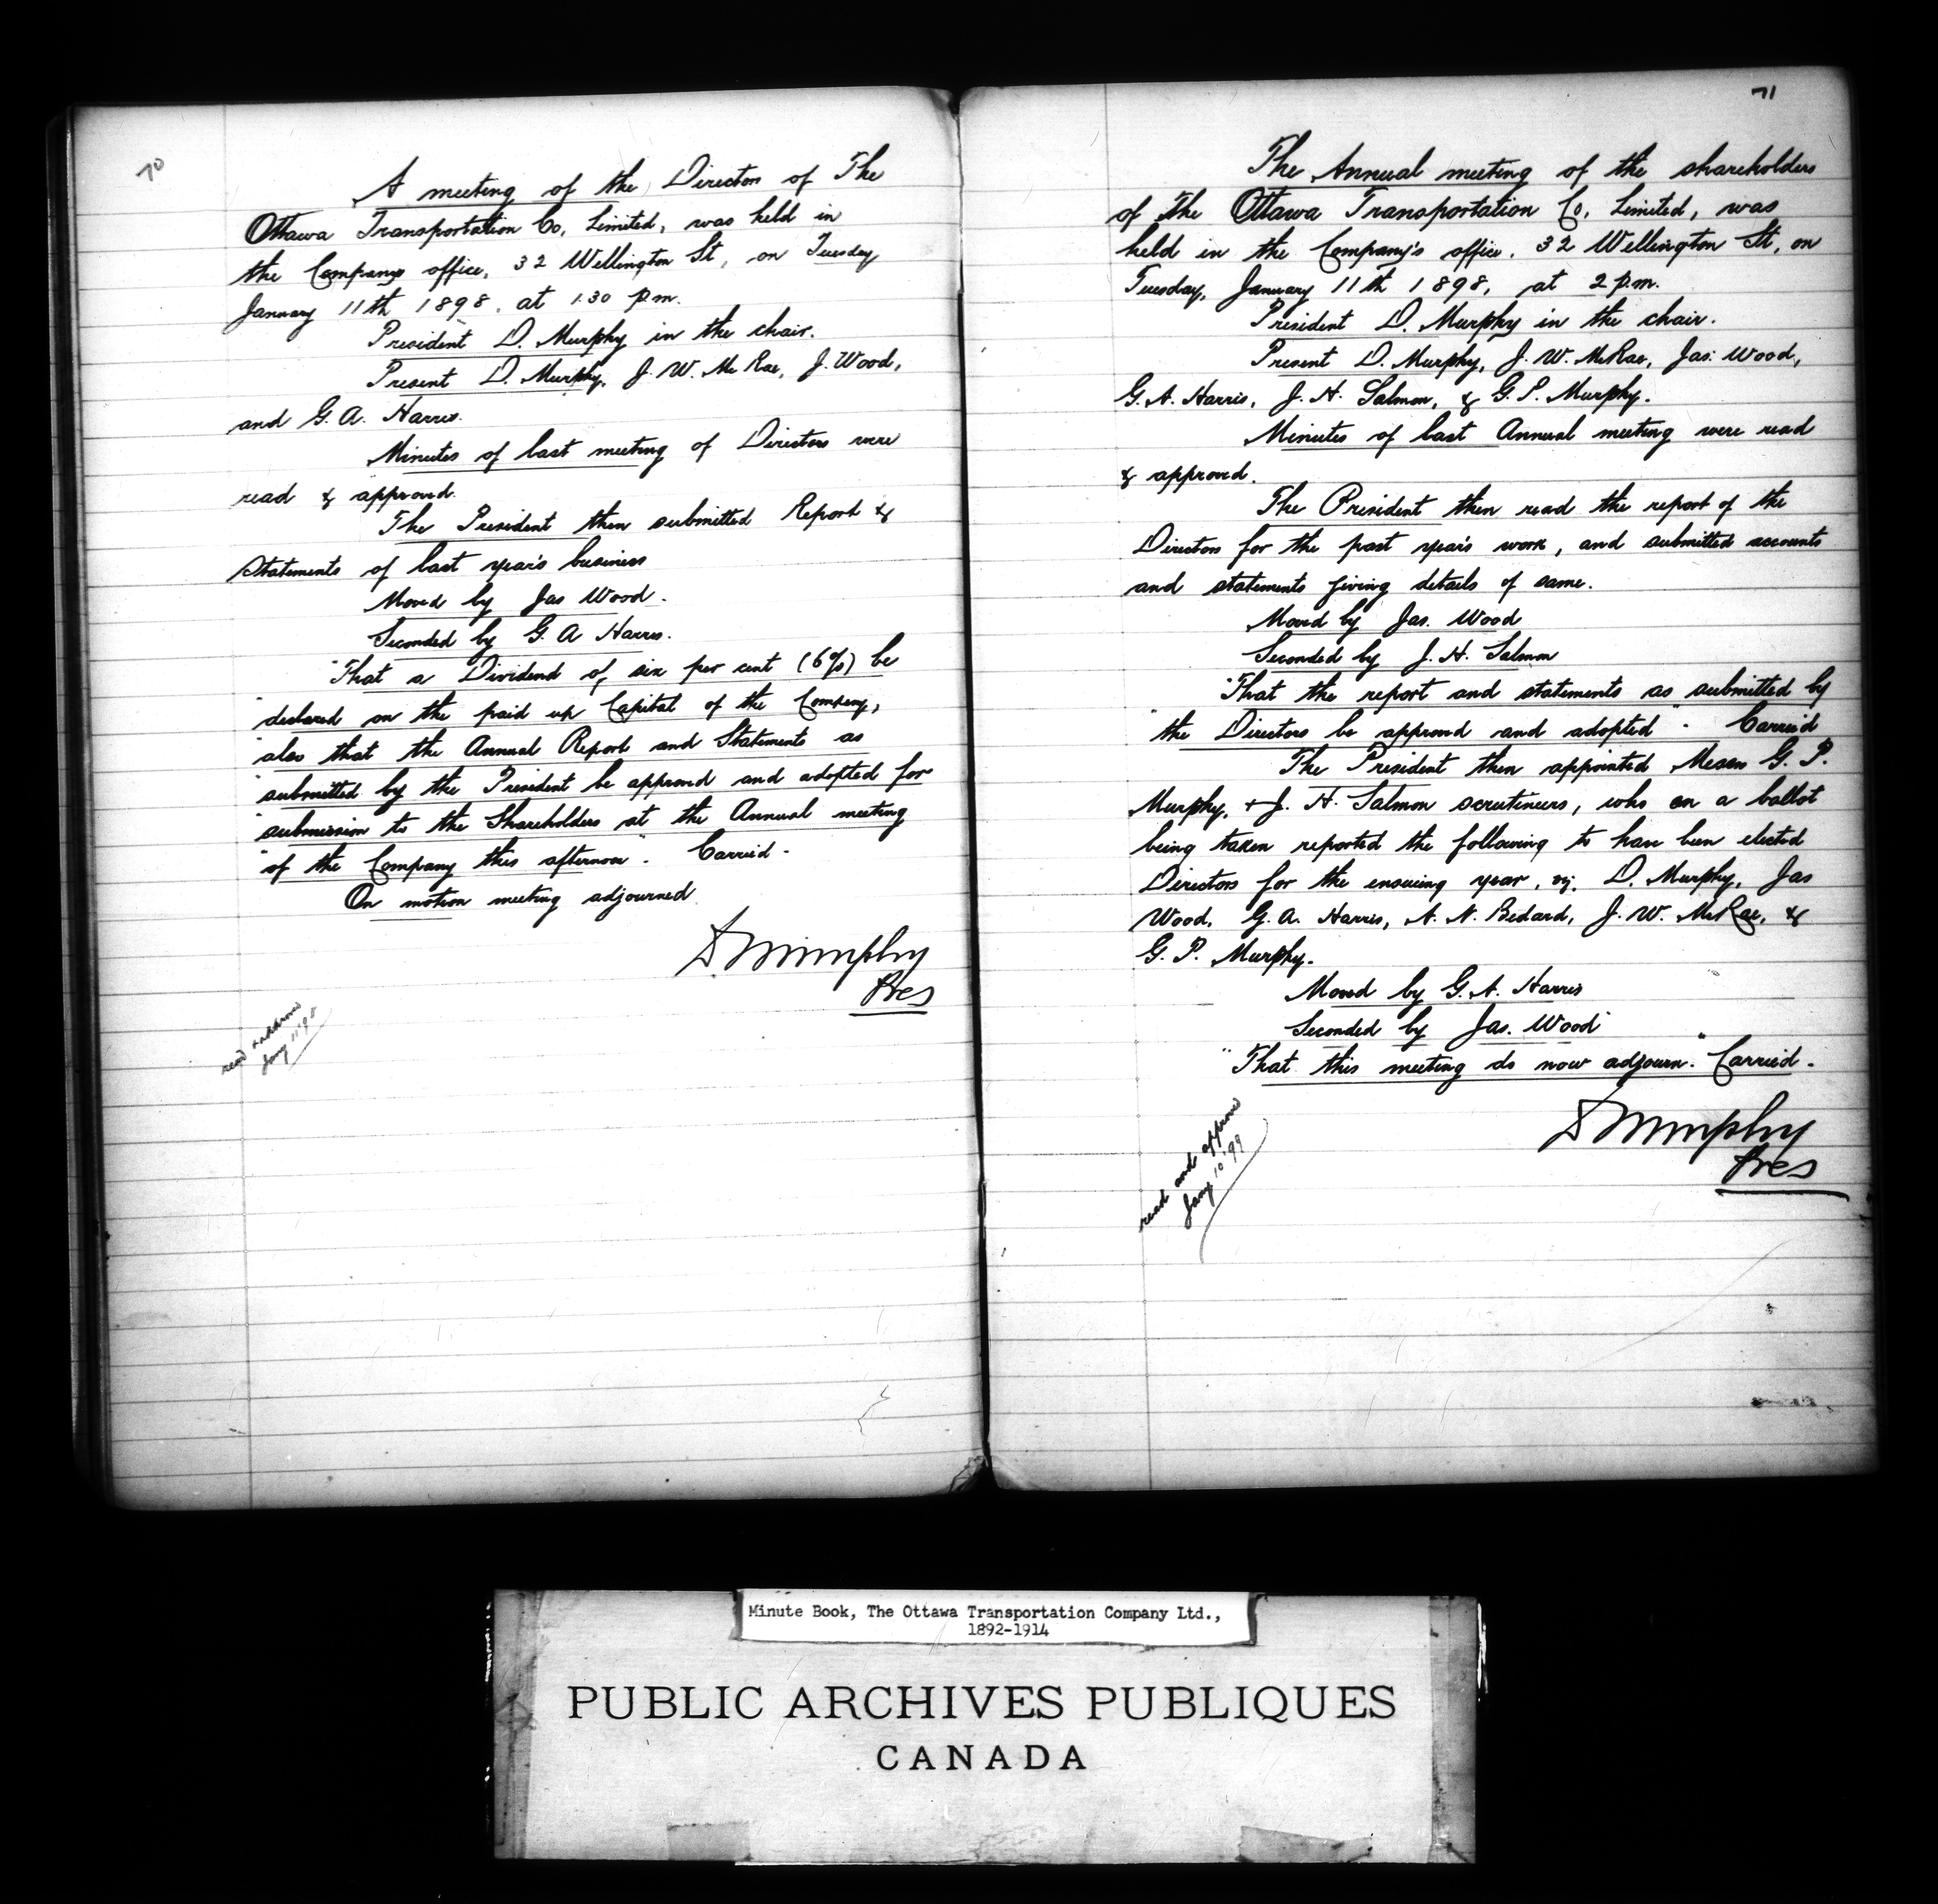 70
A meeting of the Directors of The
Ottawa Transportation Co, Limited, was held in
the Companys office, 32 Wellington St, on Tuesday
January 11th 1898, at 1.30 p.m.
President D. Murphy in the chair.
Present D. Murphy, J. W. McRae, J. Wood,
and G. A. Harris.
Minutes of last meeting of Directors were
read & approved.
The President then submitted Report &
Statements of last year's business
Moved by Jas Wood.
Seconded by G. A Harris.
"That a Dividend of six per cent (6%) be
"declared on the paid up Capital of the Company,
"also that the Annual Report and Statements as
"submitted by the President be approved and adopted for
"submission to the Shareholders at the Annual meeting
"of the Company this afternoon". Carried.
On motion meeting adjourned
D. Murphy
Pres
read & approved
Jany 11 '98
71
The Annual meeting of the shareholders
of The Ottawa Transportation Co, Limited, was
held in the Company's office, 32 Wellington St, on
Tuesday, January 11th 1898, at 2 p.m.
President D. Murphy in the chair.
Present D. Murphy, J. W. McRae, Jas. Wood,
G. A. Harris, J. H. Salmon, & G. P. Murphy.
Minutes of last Annual meeting were read
& approved.
The President then read the report of the
Directors for the past year's work, and submitted accounts
and statements giving details of same.
Moved by Jas. Wood
Seconded by J. H. Salmon
"That the report and statements as submitted by
"the Directors be approved and adopted". Carried
The President then appointed Messrs G. P.
Murphy, + J. H. Salmon scrutineers, who on a ballot
being taken reported the following to have been elected
Directors for the ensuing year, viz. D. Murphy, Jas
Wood, G. A. Harris, A. N. Bedard, J. W. McRae, &
G. P. Murphy.
Moved by G. A. Harris
Seconded by Jas. Wood
"That this meeting do now adjourn." Carried.
D Murphy
Pres
read and approved
Jany 10 '99
Minute Book, The Ottawa Transportation Company Ltd.,
1892-1914
PUBLIC ARCHIVES PUBLIQUES
CANADA